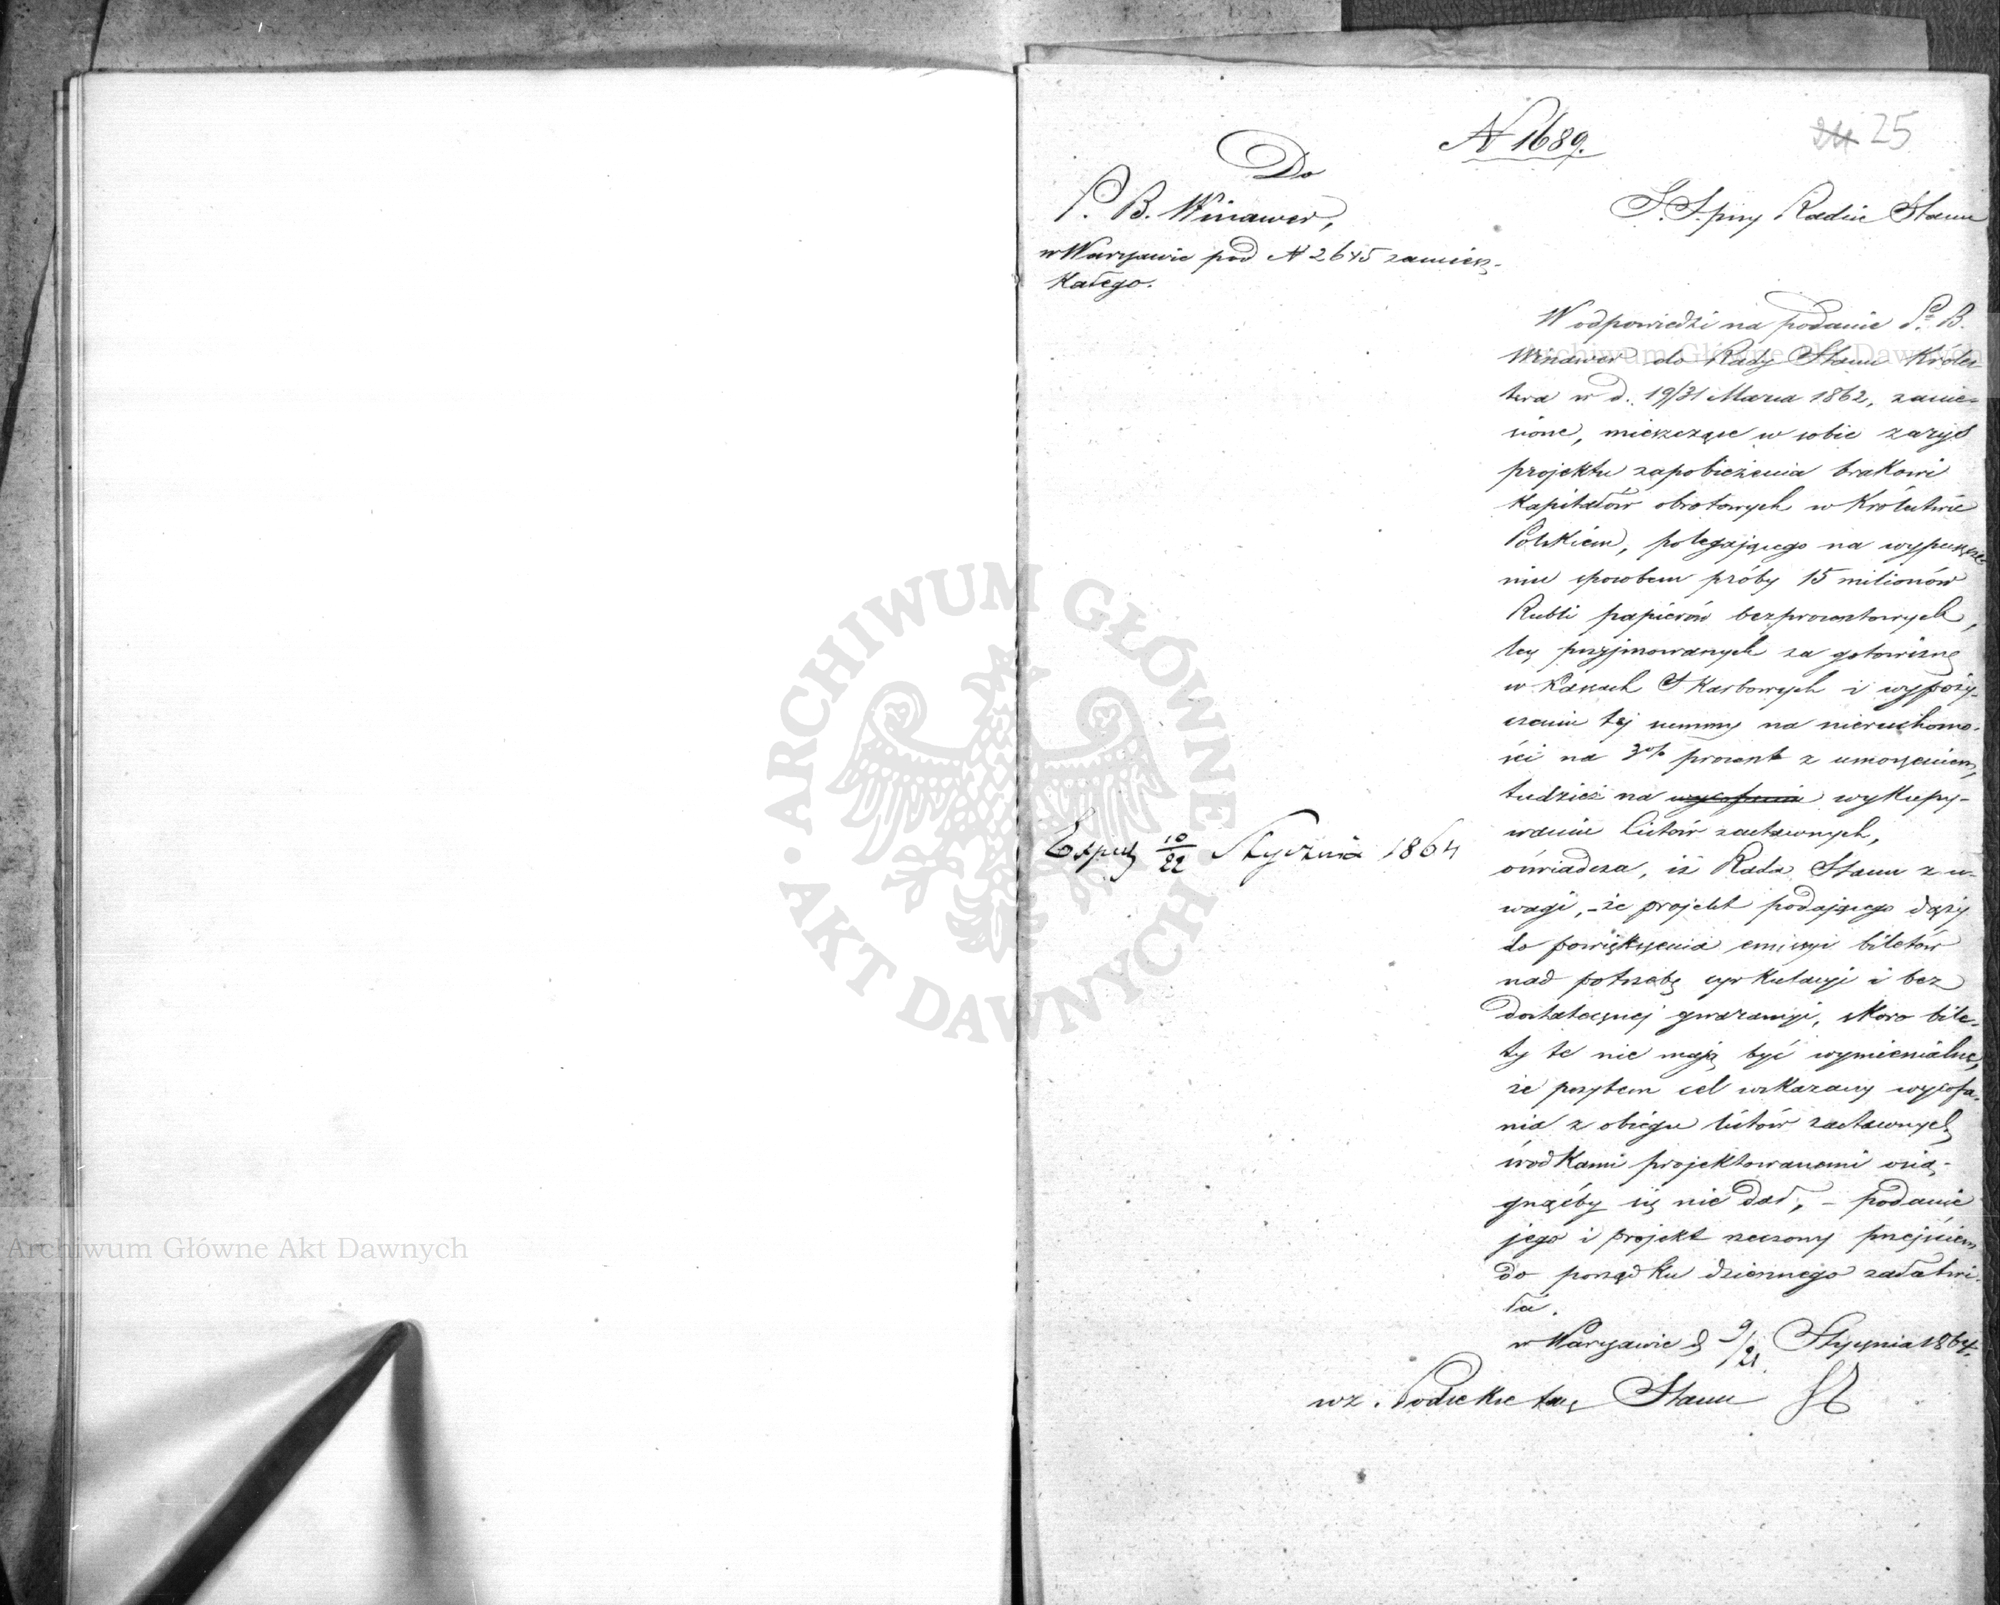 N 1689.
24 25
Do
P. B. Winawer,
w Warszawie pod N 2645 zamiesz-
kałego.
S. S. przy Radzie Stanu
W odpowiedzi na podanie Pa B.
Winawer do Rady Stanu Króles
twa w d. 19/31 Marca 1862, zanie-
sione, mieszczące w sobie zarys
projektu zapobieżenia brakowi
kapitałów obrotowych w Królestwie
Polskiem, polegającego na wypuszcze
niu sposobem próby 15 milionów
Rubli papierów bezprocentowych,
lecz przyjmowanych za gotowiznę
w Kasach Skarbowych i wypoży-
czeniu tej summy na nieruchomo-
ści na 3% procent z umorzeniem,
tudzież na wycofanie wykupy-
wanie listów zastawnych,
oświadcza, iż Rada Stanu z u-
wagi, - że projekt podającego dąży
do powiększenia emisyi biletów
nad potrzebę cyrkulacyi i bez
dostatecznej gwarancyi, skoro bile-
ty te nie mają być wymienialne,
że przytem cel wskazany wycofa-
nia z obiegu listów zastawnych
środkami projektowanemi osią-
gnąćby się nie dał, - podanie
jego i projekt rzeczony przejściem
do porządku dziennego załatwi-
ła.
w Warszawie d 9/21 Stycznia 1864.
wz. Podsekretarz Stanu
Exped 10/22 Stycznia 1864
Archiwum Główne Akt Dawnych
Archiwum Główne Akt Dawnych
ARCHIWUM GŁÓWNE · AKT DAWNYCH